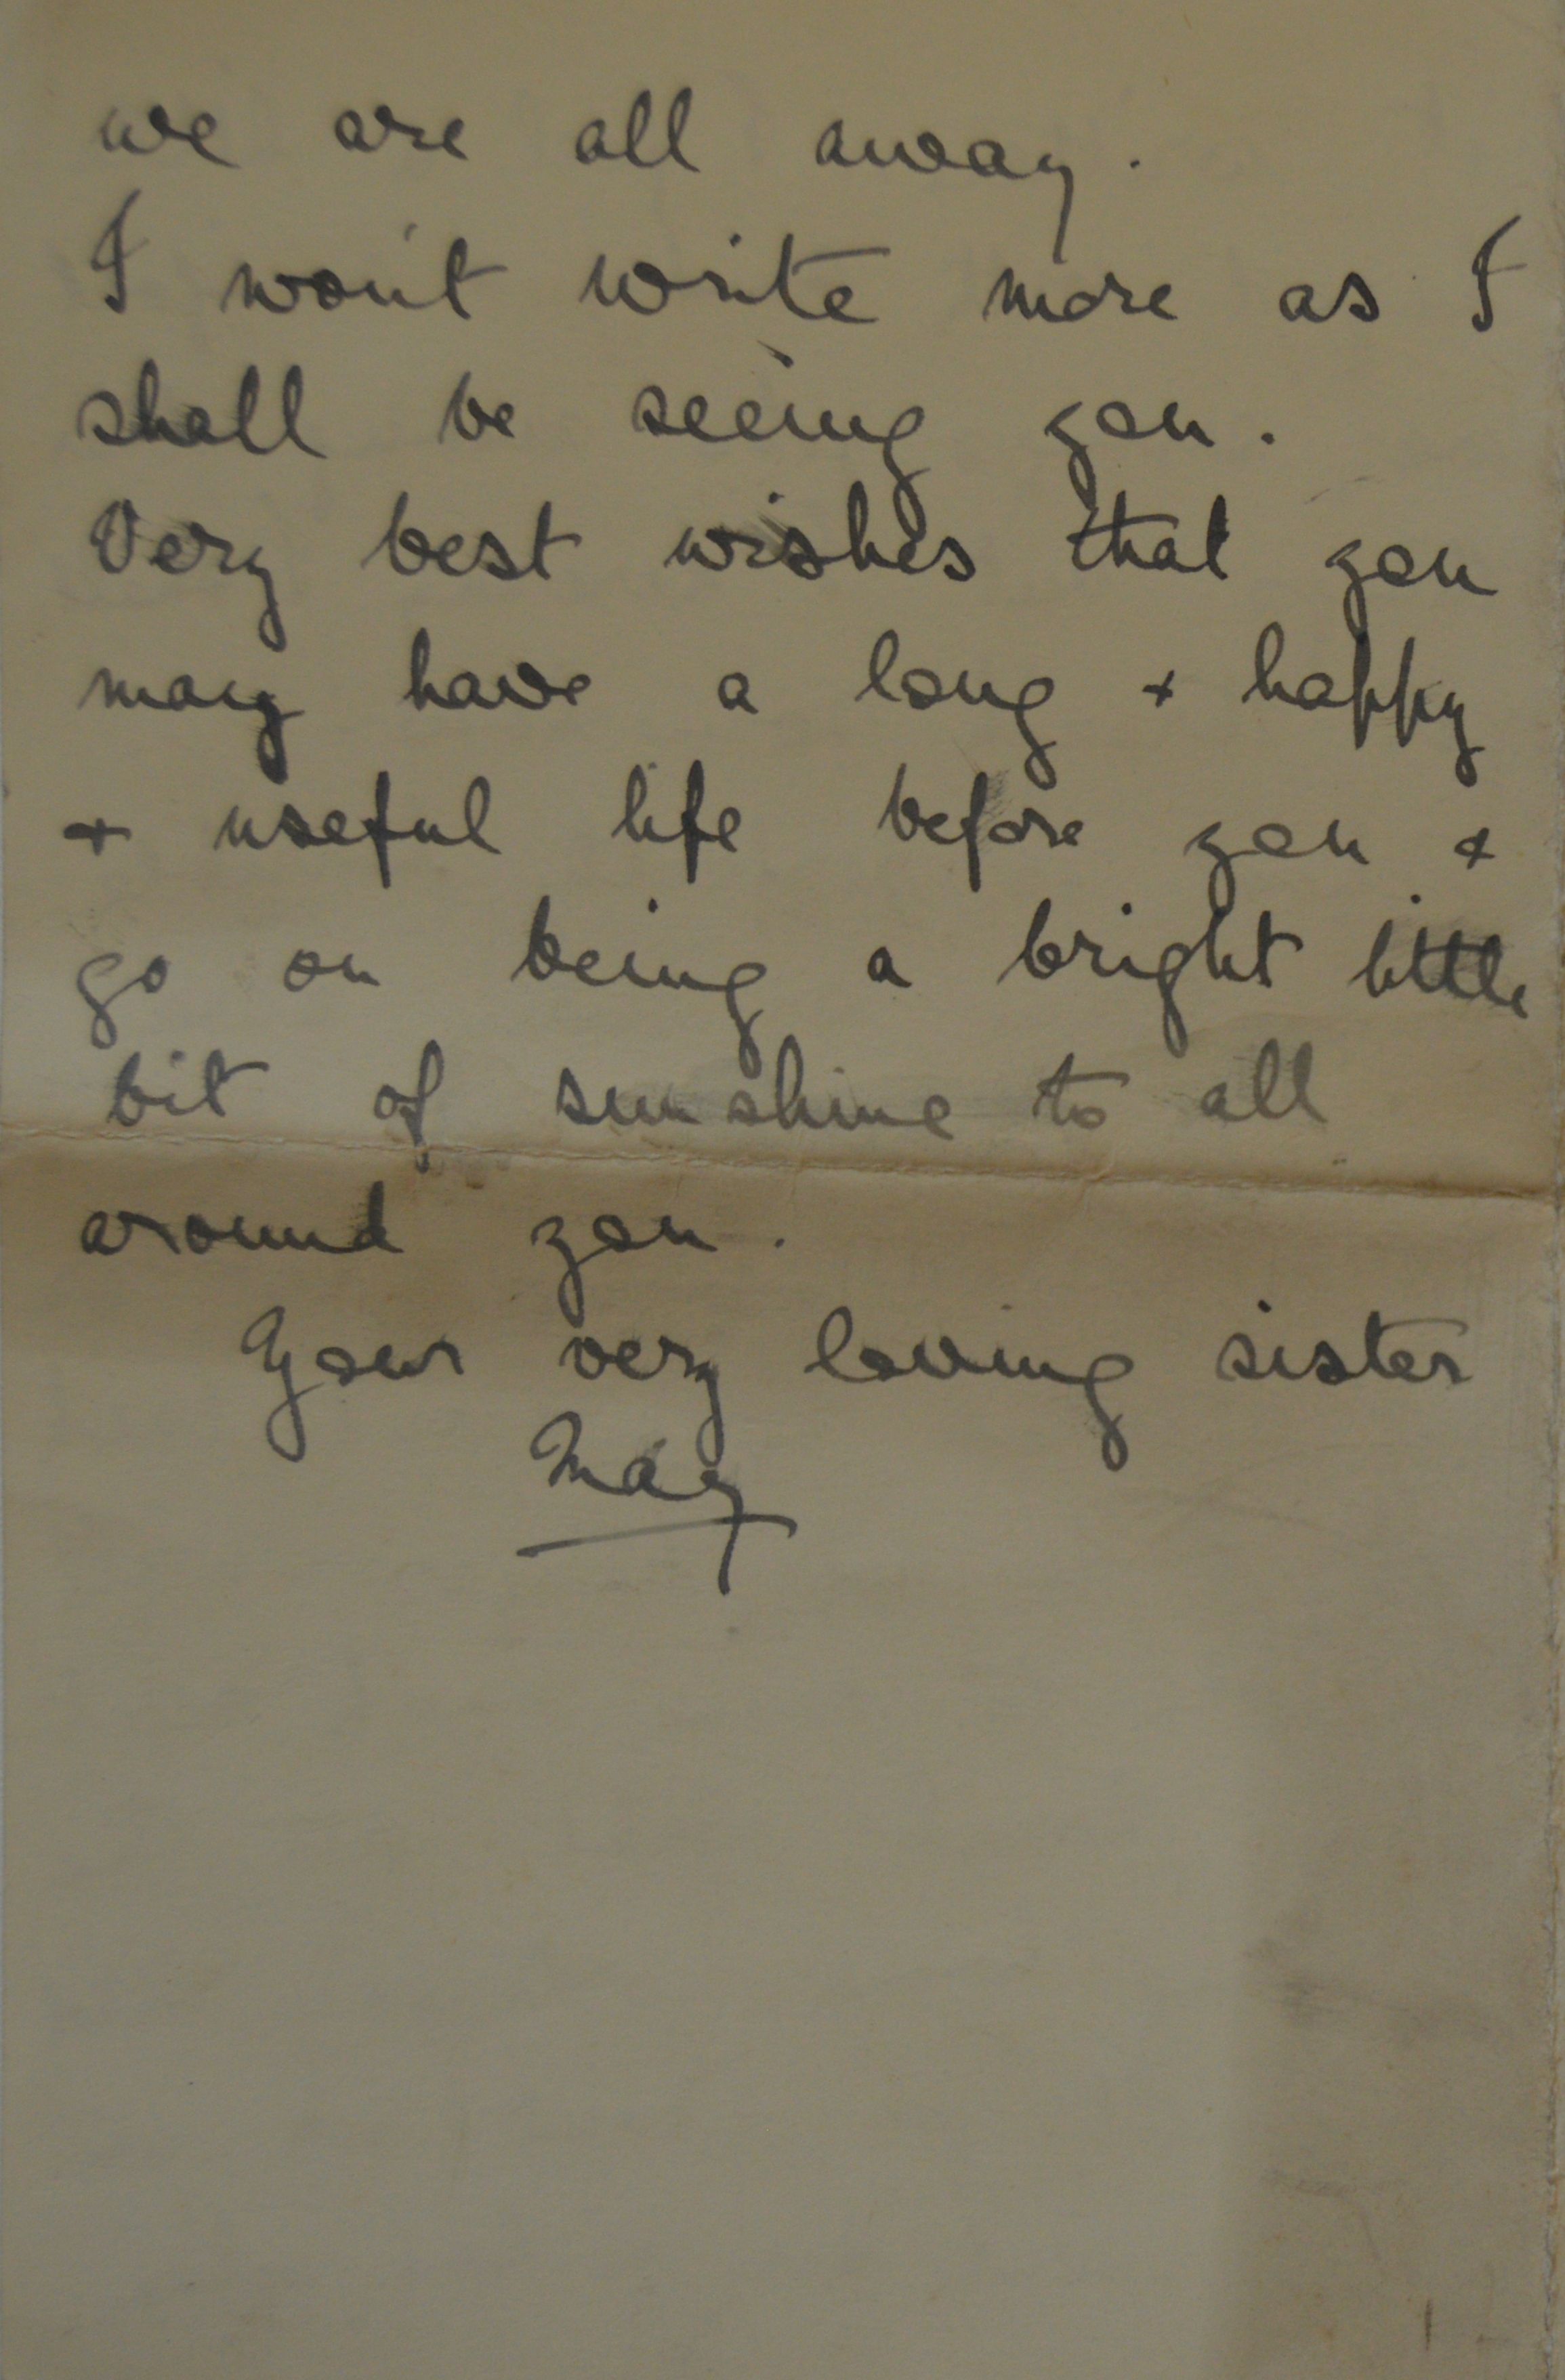 we are all away.
I won't write more as I
shall be seeing you.
Very best wishes that you
may have a long + happy
+ useful life before you +
go on being a bright little
bit of sunshine to all
around you.
Your very loving sister
May